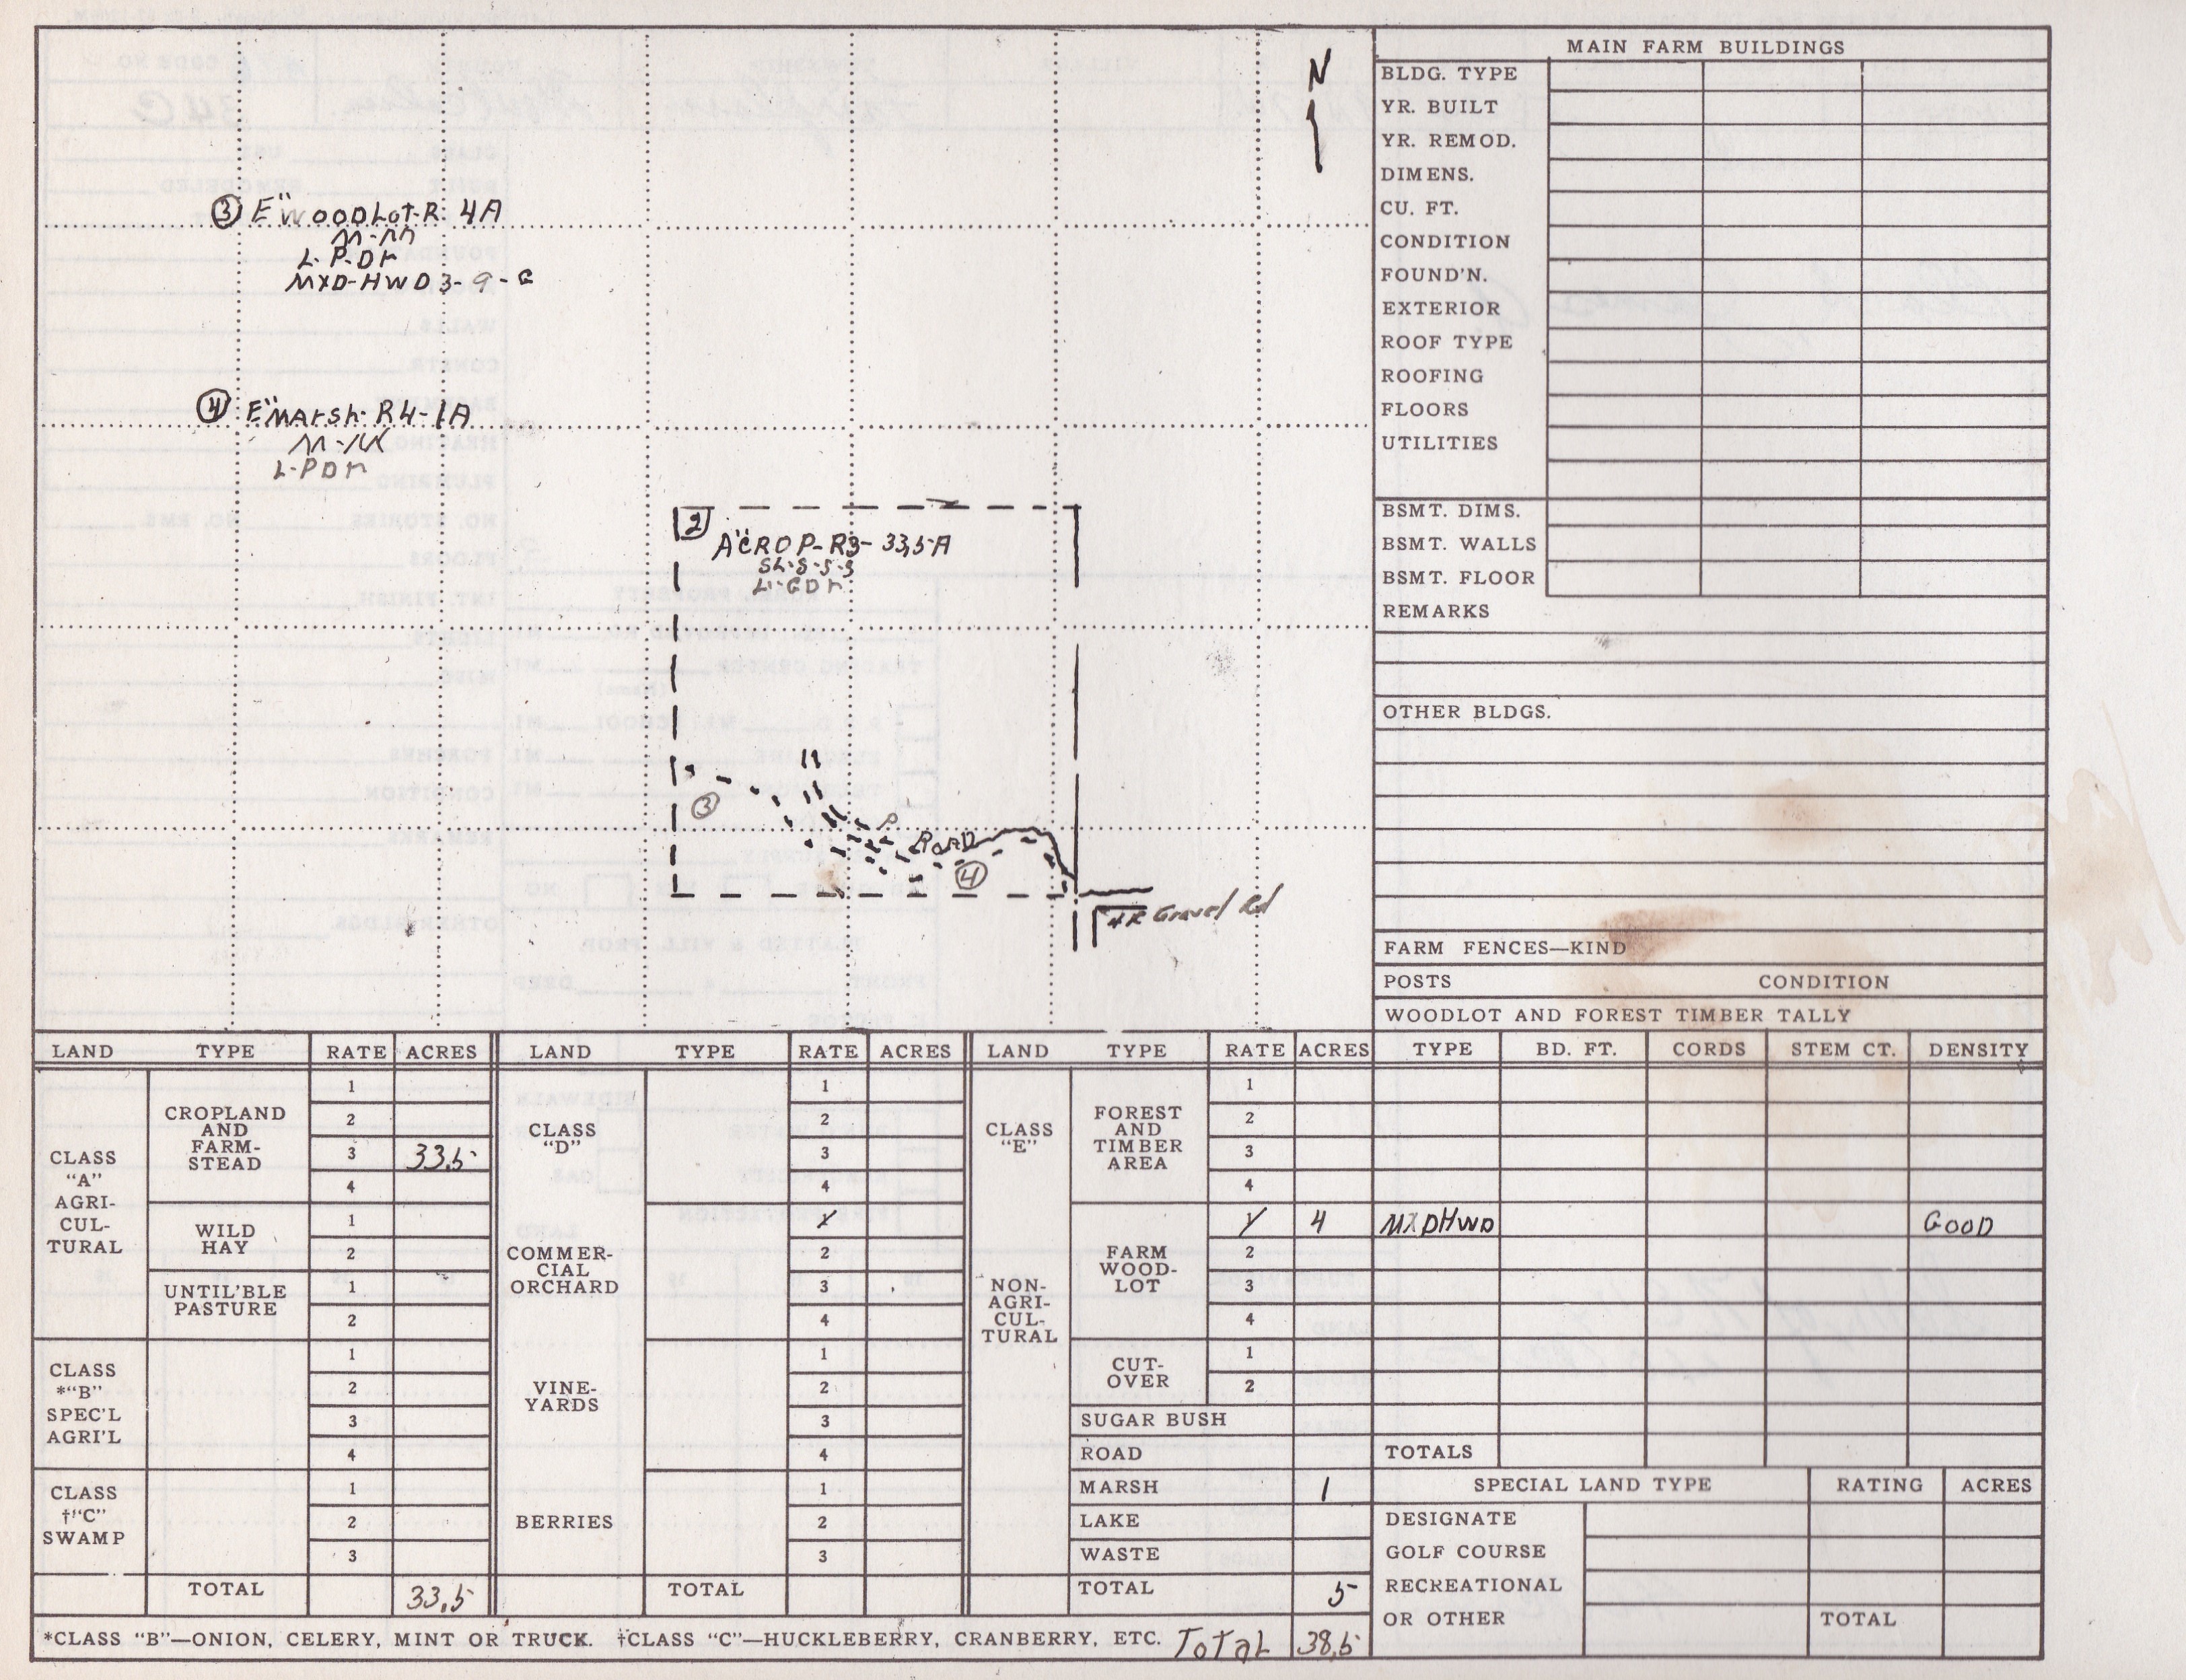 N
③ E"WOODLOT-R. 4A
L-P-Dr
MXD-HWD 3-9-G
④ E"MArsh-R4-1A
L-PDr
2
A"CROP-R3-33,5A
SL-S-S-S
L-GDr
③
P
ROAD
④
4R Gravel Rd
MAIN FARM BUILDINGS
BLDG. TYPE
YR. BUILT
YR. REMOD.
DIMENS.
CU. FT.
CONDITION
FOUND'N.
EXTERIOR
ROOF TYPE
ROOFING
FLOORS
UTILITIES
BSMT. DIMS.
BSMT. WALLS
BSMT. FLOOR
REMARKS
OTHER BLDGS.
FARM FENCES—KIND
POSTS CONDITION
WOODLOT AND FOREST TIMBER TALLY
TYPE BD. FT. CORDS STEM CT. DENSITY
MXDHWD GOOD
TOTALS
SPECIAL LAND TYPE RATING ACRES
DESIGNATE
GOLF COURSE
RECREATIONAL
OR OTHER TOTAL
LAND TYPE RATE ACRES
CLASS
"A"
AGRI-
CUL-
TURAL
CROPLAND
AND
FARM-
STEAD
1
2
3 33.5
4
WILD
HAY
1
2
UNTIL'BLE
PASTURE
1
2
CLASS
*"B"
SPEC'L
AGRI'L
1
2
3
4
CLASS
†"C"
SWAMP
1
2
3
TOTAL 33,5
LAND TYPE RATE ACRES
CLASS
"D"
1
2
3
4
COMMER-
CIAL
ORCHARD
1
2
3
4
VINE-
YARDS
1
2
3
4
BERRIES
1
2
3
TOTAL
LAND TYPE RATE ACRES
CLASS
"E"
NON-
AGRI-
CUL-
TURAL
FOREST
AND
TIMBER
AREA
1
2
3
4
FARM
WOOD-
LOT
1 4
2
3
4
CUT-
OVER
1
2
SUGAR BUSH
ROAD
MARSH 1
LAKE
WASTE
TOTAL 5
*CLASS "B"—ONION, CELERY, MINT OR TRUCK. †CLASS "C"—HUCKLEBERRY, CRANBERRY, ETC. TOTAL 38,5